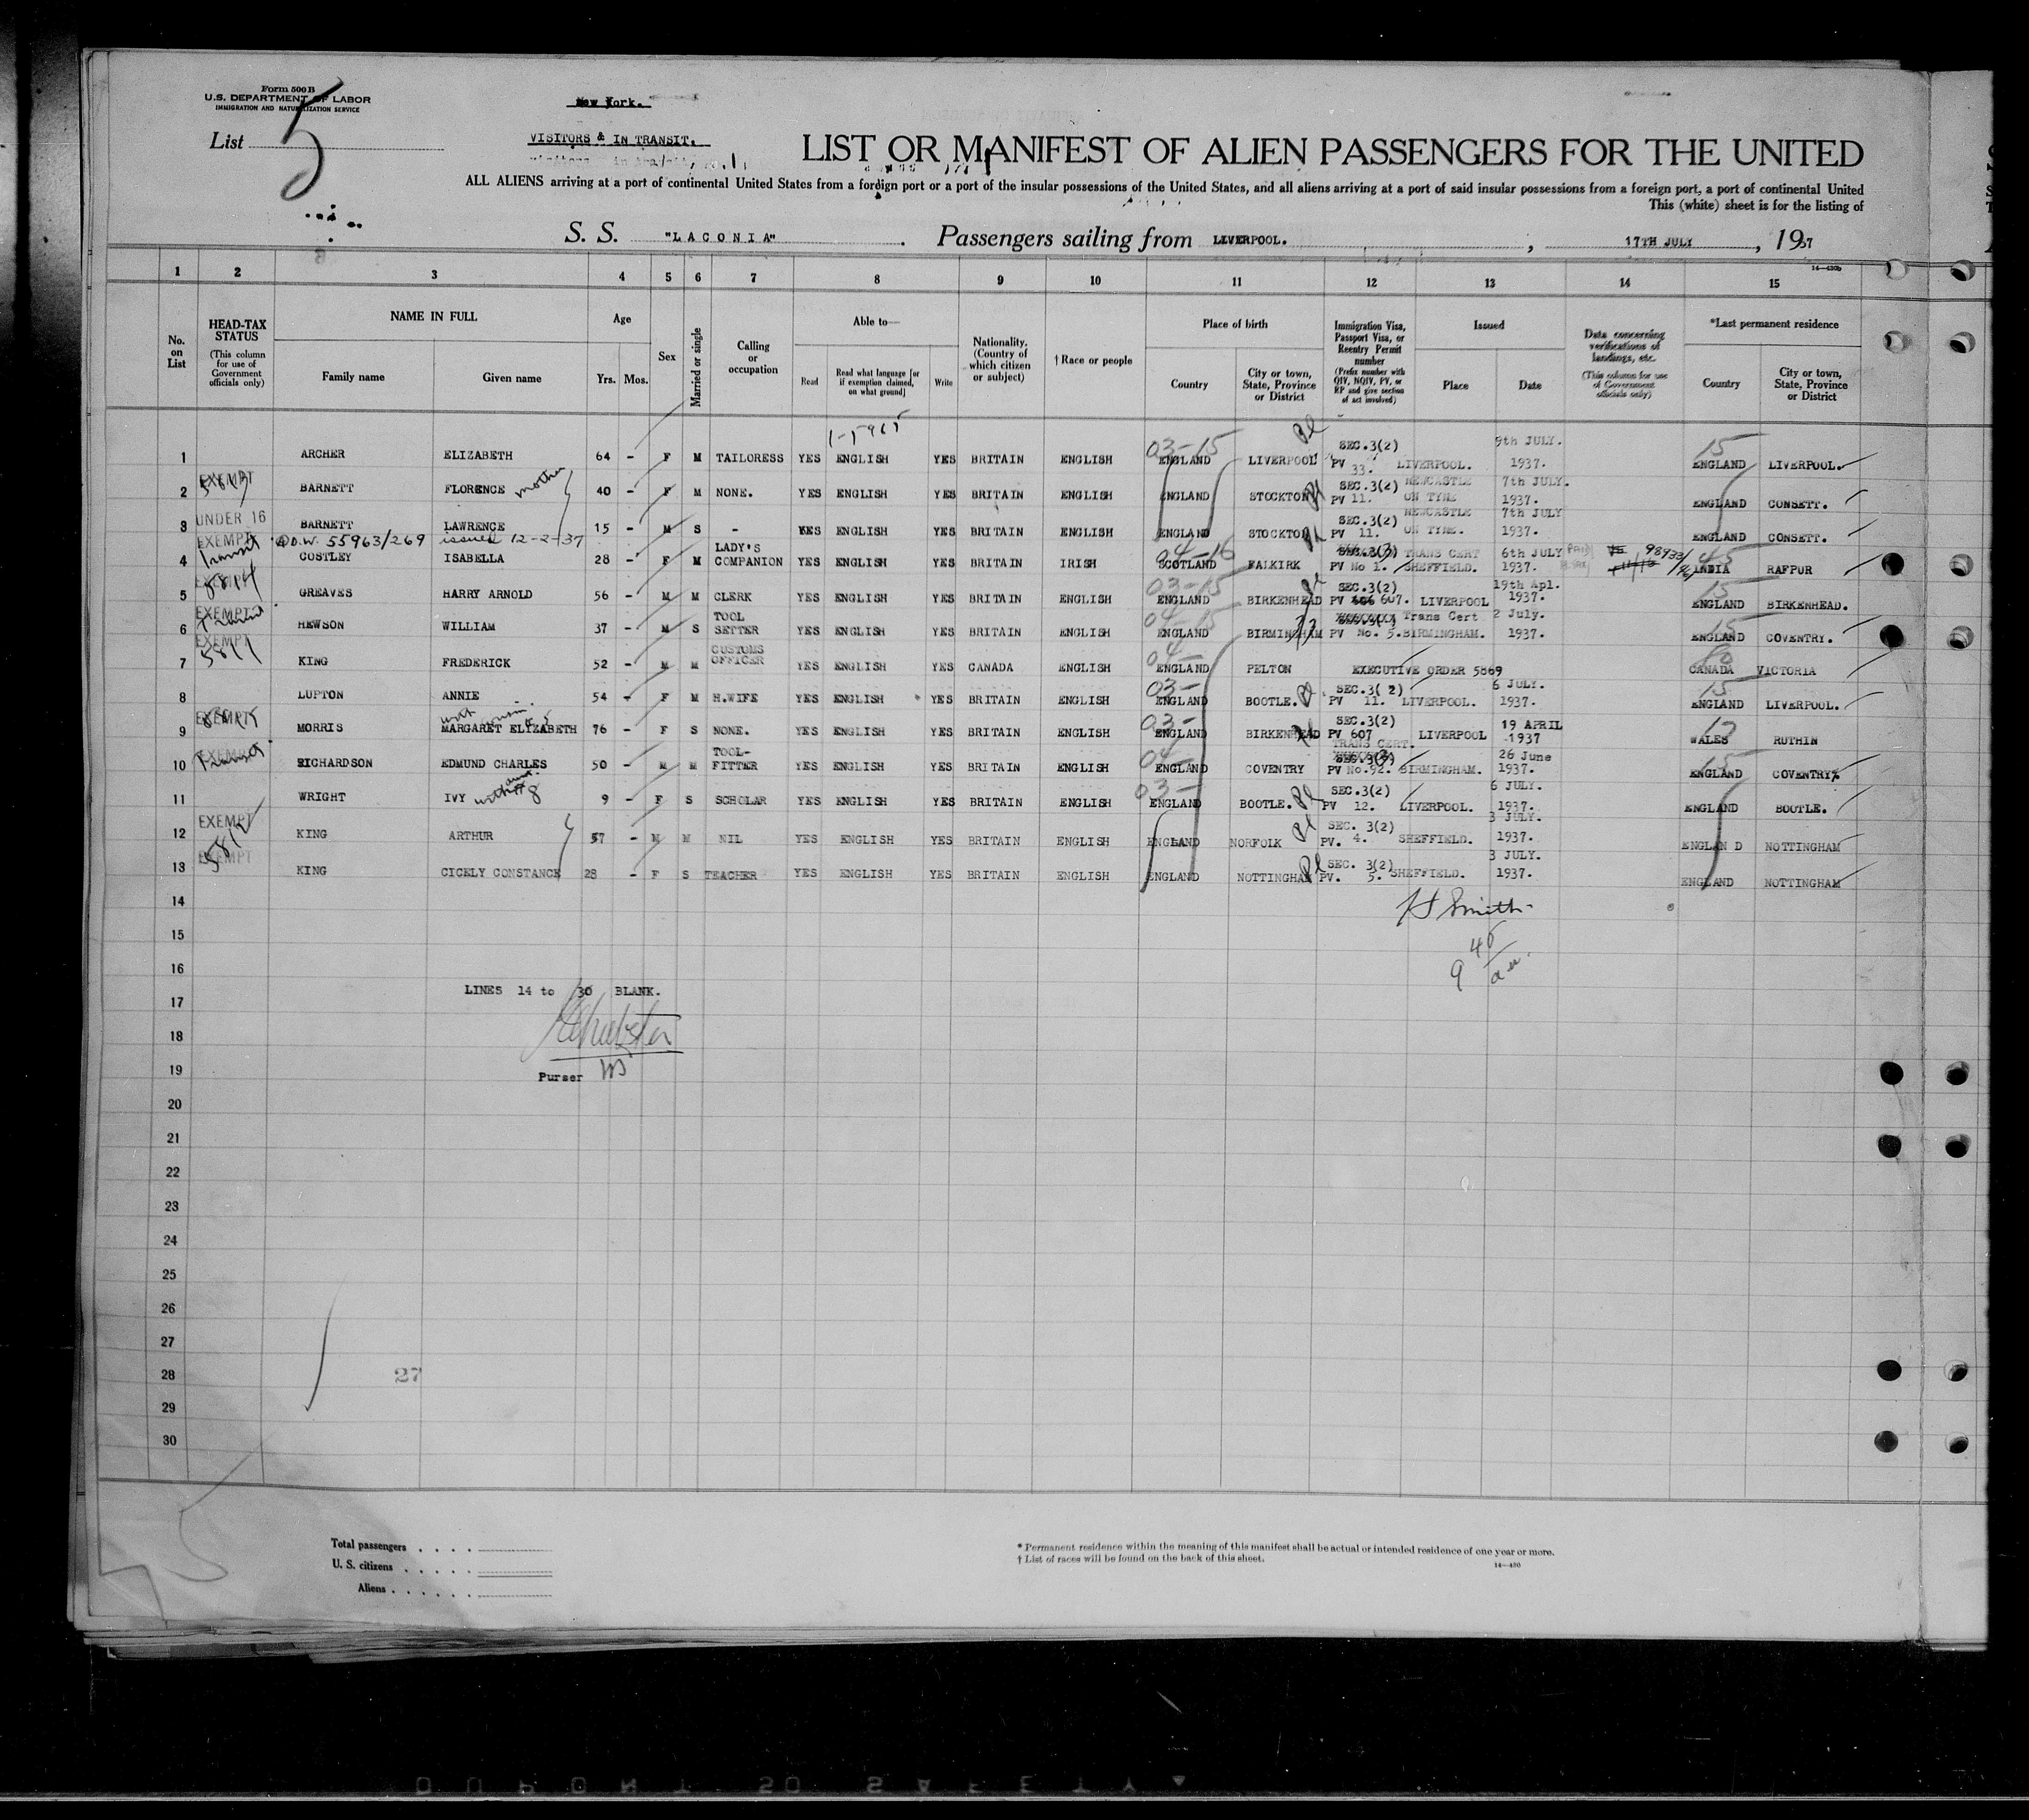 Form 500 B
U.S. DEPARTMENT OF LABOR
IMMIGRATION AND NATURALIZATION SERVICE
New York.
List 5
VISITORS & IN TRANSIT.
LIST OR MANIFEST OF ALIEN PASSENGERS FOR THE UNITED
ALL ALIENS arriving at a port of continental United States from a foreign port or a port of the insular possessions of the United States, and all aliens arriving at a port of said insular possessions from a foreign port, a port of continental United
This (white) sheet is for the listing of
S. S. "LACONIA" . Passengers sailing from LIVERPOOL. , 17TH JULY , 1937
14-430b
1 2 3 4 5 6 7 8 9 10 11 12 13 14 15
No. on List
HEAD-TAX STATUS (This column for use of Government officials only)
NAME IN FULL
Family name Given name
Age
Yrs. Mos.
Sex
Married or single
Calling or occupation
Able to—
Read Read what language [or if exemption claimed, on what ground] Write
Nationality. (Country of which citizen or subject)
† Race or people
Place of birth
Country City or town, State, Province or District
Immigration Visa, Passport Visa, or Reentry Permit number (Prefix number with QIV, NQIV, PV, or RP and give section of act involved)
Issued
Place Date
Data concerning verifications of landings, etc. (This column for use of Government officials only)
*Last permanent residence
Country City or town, State, Province or District
1 ARCHER ELIZABETH 64 - F M TAILORESS YES ENGLISH YES BRITAIN ENGLISH 03-15 ENGLAND LIVERPOOL SEC.3(2) PV 33. LIVERPOOL. 9th JULY. 1937. 15 ENGLAND LIVERPOOL.
2 EXEMPT BARNETT FLORENCE mother 40 - F M NONE. YES ENGLISH YES BRITAIN ENGLISH ENGLAND STOCKTON SEC.3(2) PV 11. NEWCASTLE ON TYNE 7th JULY. 1937. ENGLAND CONSETT.
3 UNDER 16 BARNETT LAWRENCE 15 - M S - YES ENGLISH YES BRITAIN ENGLISH ENGLAND STOCKTON SEC.3(2) PV 11. NEWCASTLE ON TYNE. 7th JULY 1937. ENGLAND CONSETT.
55963/269 issued 12-2-37
4 EXEMPT transit COSTLEY ISABELLA 28 - F M LADY'S COMPANION YES ENGLISH YES BRITAIN IRISH 04-16 SCOTLAND FALKIRK SEC.3(3) PV No 1. TRANS CERT SHEFFIELD. 6th JULY 1937. 45 INDIA RAFPUR
5 GREAVES HARRY ARNOLD 56 - M M CLERK YES ENGLISH YES BRITAIN ENGLISH 03-15 ENGLAND BIRKENHEAD SEC.3(2) PV 606 607. LIVERPOOL 19th Apl. 1937. 15 ENGLAND BIRKENHEAD.
6 EXEMPT HEWSON WILLIAM 37 - M S TOOL SETTER YES ENGLISH YES BRITAIN ENGLISH 04-15 ENGLAND BIRMINGHAM PV No. 5. Trans Cert BIRMINGHAM. 2 July. 1937. 15 ENGLAND COVENTRY.
7 EXEMPT KING FREDERICK 52 - M M CUSTOMS OFFICER YES ENGLISH YES CANADA ENGLISH 04- ENGLAND PELTON EXECUTIVE ORDER 5869 CANADA VICTORIA
8 LUPTON ANNIE 54 - F M H.WIFE YES ENGLISH YES BRITAIN ENGLISH 03- ENGLAND BOOTLE. SEC.3( 2) PV 11. LIVERPOOL. 6 JULY. 1937. 15 ENGLAND LIVERPOOL.
9 EXEMPT MORRIS MARGARET ELIZABETH 76 - F S NONE. YES ENGLISH YES BRITAIN ENGLISH 03- ENGLAND BIRKENHEAD SEC.3(2) PV 607 LIVERPOOL 19 APRIL 1937 WALES RUTHIN
10 EXEMPT RICHARDSON EDMUND CHARLES 50 - M M TOOL-FITTER YES ENGLISH YES BRITAIN ENGLISH 04- ENGLAND COVENTRY TRANS CERT. SEC.3(3) PV No.92. BIRMINGHAM. 26 June 1937. 15 ENGLAND COVENTRY
11 WRIGHT IVY with aunt 8 9 - F S SCHOLAR YES ENGLISH YES BRITAIN ENGLISH 03- ENGLAND BOOTLE. SEC.3(2) PV 12. LIVERPOOL. 6 JULY. 1937. ENGLAND BOOTLE.
12 EXEMPT KING ARTHUR 57 - M M NIL YES ENGLISH YES BRITAIN ENGLISH ENGLAND NORFOLK SEC. 3(2) PV. 4. SHEFFIELD. 3 JULY. 1937. ENGLAN D NOTTINGHAM
13 EXEMPT KING CICELY CONSTANCE 28 - F S TEACHER YES ENGLISH YES BRITAIN ENGLISH ENGLAND NOTTINGHAM SEC. 3(2) PV. 5. SHEFFIELD. 3 JULY. 1937. ENGLAND NOTTINGHAM
14
15
16
LINES 14 to 30 BLANK.
17
18
19
Purser
20
21
22
23
24
25
26
27
28
27
29
30
Total passengers . . . .
U. S. citizens . . . . .
Aliens . . . . . .
* Permanent residence within the meaning of this manifest shall be actual or intended residence of one year or more.
† List of races will be found on the back of this sheet.
14-430
DUPONT 50 SAFETY